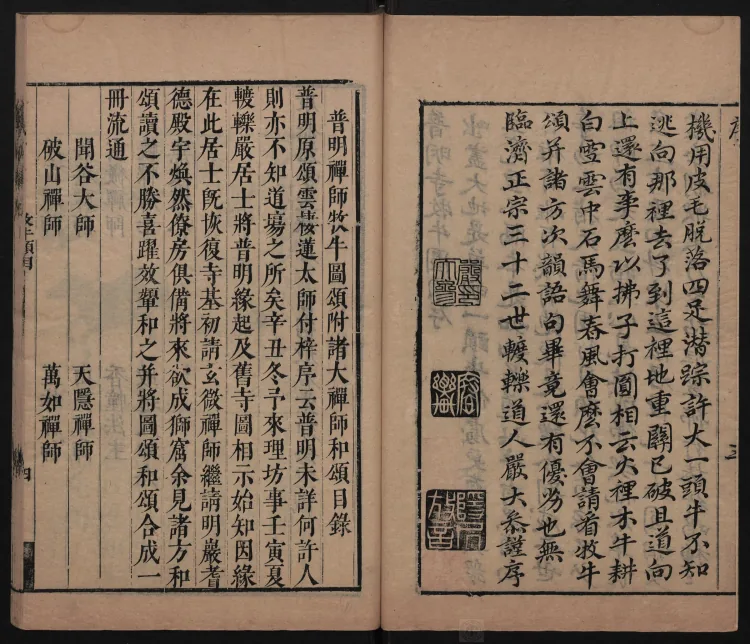 機用皮毛脫落四足潜踪許大一頭牛不知
逃向那裡去了到這裡地重關已破且道向
上還有事麼以拂子打圓相云火裡木牛耕
白雪雲中石馬舞春風會麼不會請看牧牛
頌并諸方次韻語句畢竟還有優劣也無
臨濟正宗三十二世𨍏轢道人嚴大叅謹序
三
普明禪師牧牛圖頌附諸大禪師和頌目錄
普明原頌雲棲蓮太師付梓序云普明未詳何許人
則亦不知道場之所矣辛丑冬予來理坊事壬寅夏
𨍏轢嚴居士將普明緣起及舊寺圖相示始知因緣
在此居士旣恢復寺基初請玄微禪師繼請明巖耆
德殿宇煥然僚房俱備將來欲成獅窟余見諸方和
頌讀之不勝喜躍效顰和之并將圖頌和頌合成一
冊流通
聞谷大師 天隱禪師
破山禪師 萬如禪師
牧牛頌目 四